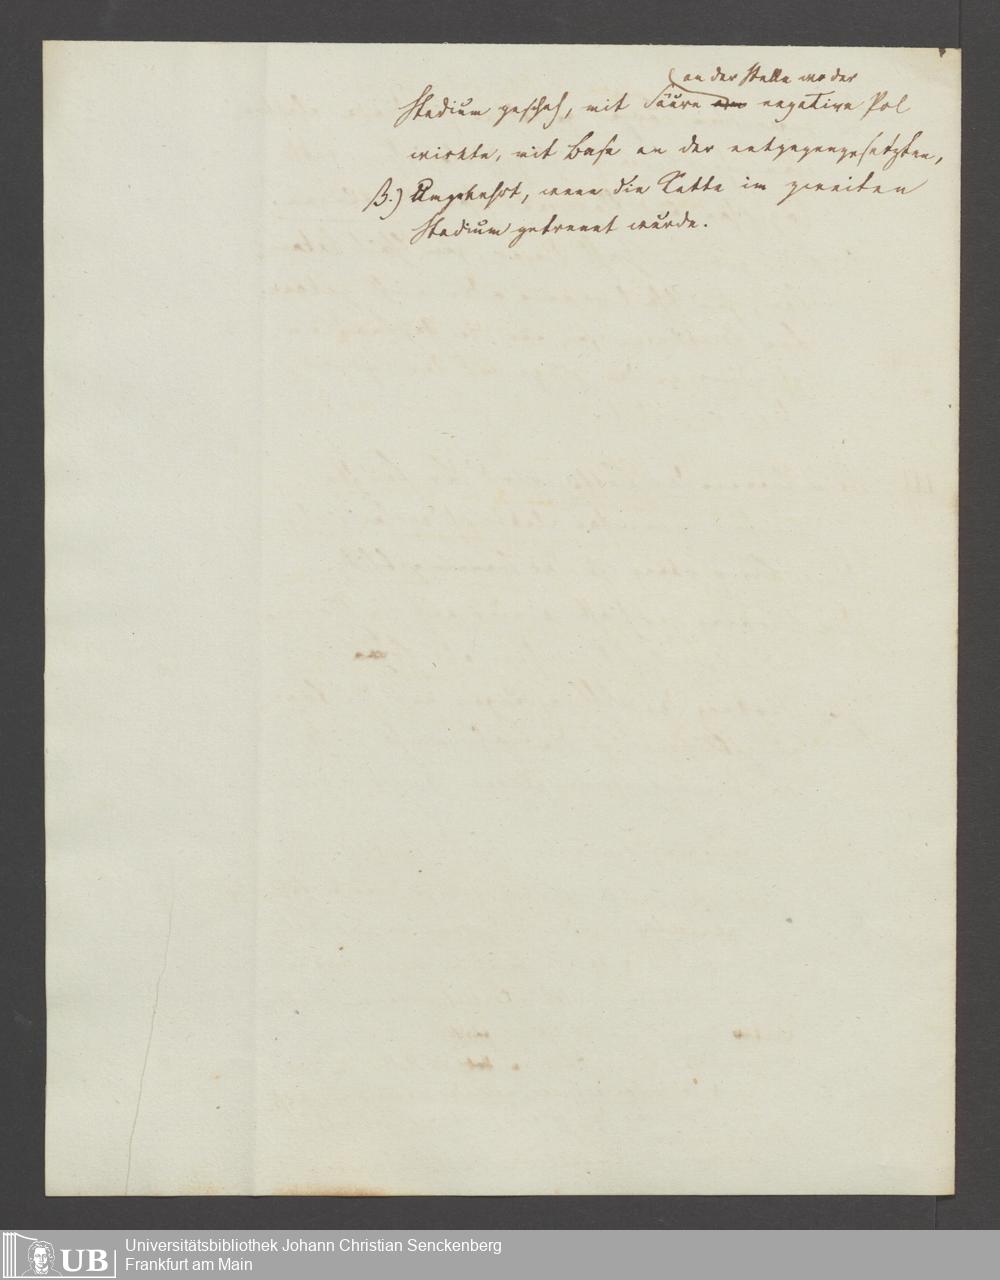 an der Stelle wo der
Stadium geschah, mit Säure negative Pol
wirkte, mit Base an der entgegengesetzten,
β.) Umgekehrt, wenn die Kette im zweiten
Stadium getrennt wurde.
UB
Universitätsbibliothek Johann Christian Senckenberg
Frankfurt am Main